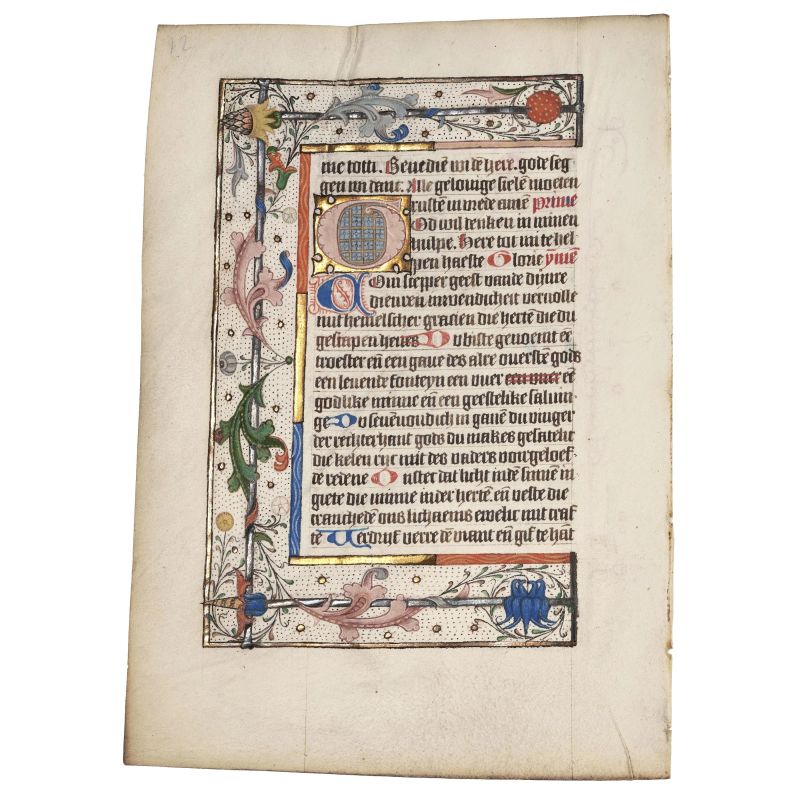 12
me totti. Benediē wi dē here. gode seg
gen wi danc. Alle gelovige sielē moeten
rustē in vrede amē Prime
God wil denken in minen
hulpe. Here tot mi te hel
pen haeste Glorie ymē
Com scepper geest vande dijnre
dienren inwendicheit vervolle
mit hemelscher gracien die hertē die du
gescapen heves Du biste genoemt er
troester eñ een gave des alre overstē gods
een levende fonteyn een vuer een vuer eñ
godlike minne eñ een geestelike salvin
ge Du sevenvoudich in gavē du vinger
der rechter hant gods du makes gesaticht
die kelen ryc mit des vaders voorgeloef
de redene Onster dat licht indē sinnē in
giete die minne in der hertē. eñ veste die
crancheden ons lichaems ewelic mit craf
te Verdrijf verre dē viant eñ gif te hāt